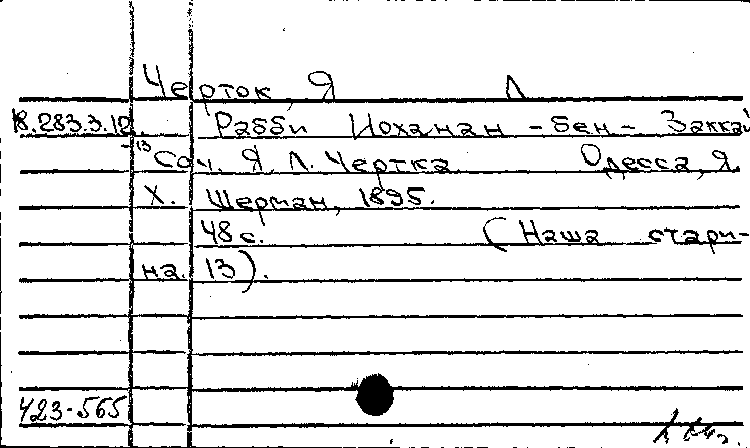 Черток, Я Л
18.283.3.12. Рабби Иоханан-бен-Заккай
13 Соч. Я. Л. Чертка Одесса, Я.
Х. Шерман, 1895.
48 с. (Наша стари-
на. 13).
423-565